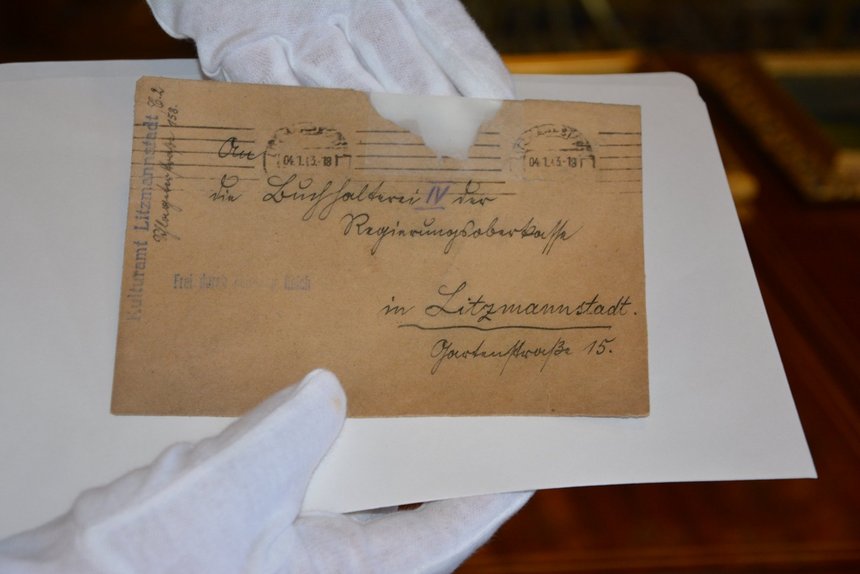 An
die Buchhalterei IV der
Regierungsoberkasse
in Litzmannstadt.
Gartenstraße 15.
Kulturamt Litzmannstadt C.2
158.
04.1.43.-18
04.1.43.-18
Frei durch Reich